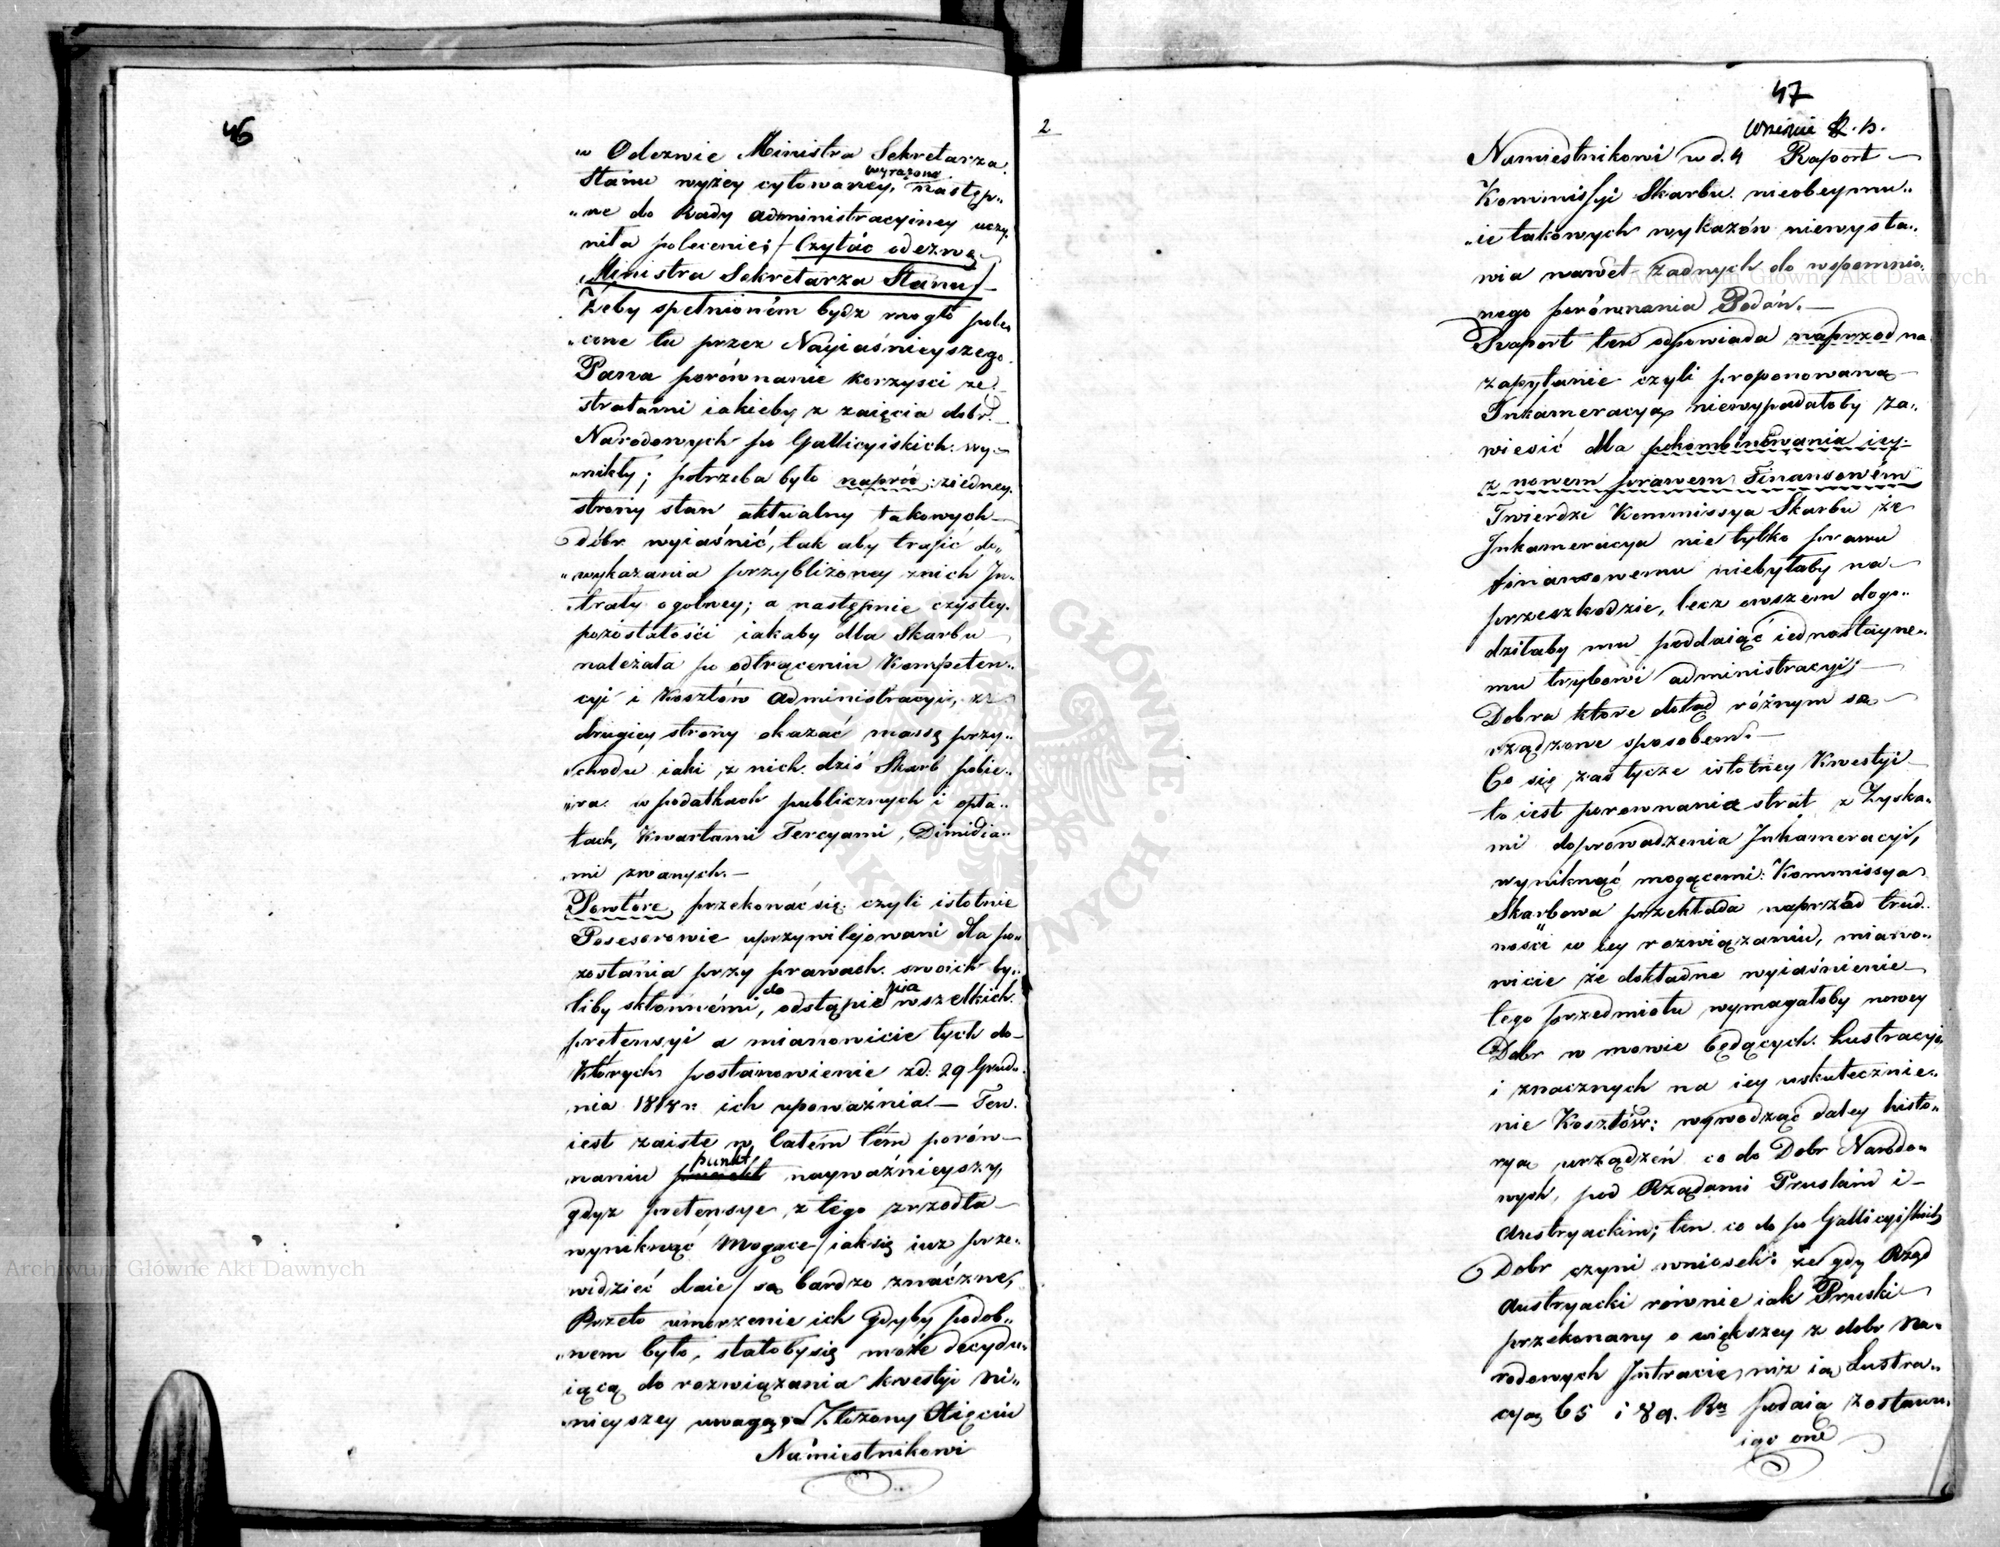 46
w Odezwie Ministra Sekretarza
Stanu wyżey cytowaney, wyrażone następ„
„ne do Rady administracyiney uczy„
niła polecenie; / Czytać odezwę
Ministra Sekretarza Stanu /
Żeby spełnioném bydz mogło pole„
„cone tu przez Nayiaśnieyszego
Pana porównanie korzysci ze
stratami iakieby z zaięcia dóbr
Narodowych po Gallicyiskich wy„
„nikły; potrzeba było naprzód: ziedney
strony stan aktualny takowych
dóbr wyiaśnić, tak aby trafić do„
„wykazania przybliżoney znich In„
„traty ogolney; a następnie czystey
pozostałości iakaby dla Skarbu
należała po odtrąceniu Kompeten„
cyi i Kosztów administracyi, ze
drugiey strony okazać massę przy„
„chodu iaki z nich dziś Skarb pobie„
„ra w podatkach publicznych i opła„
tach, Kwartami Tercyami, Dimidia„
„mi zwanych.—
Powtóre przekonać się czyli istotnie
Posesorowie uprzywilejowani dla po„
zostania przy prawach swoich by„
liby skłonnémi, do odstąpienia wszelkich
pretensyi a mianowicie tych do
których postanowienie zd: 29 Grud„
nia 1818 r. ich upoważnia — Ten
iest zaiste w całém tém porów„
naniu punkt nayważnieyszy,
gdyz pretensye z tego zrzodła
wyniknąć mogące / iak się iuz prze„
widzieć daie / są bardzo znaczne,
Przeto umorzenie ich gdyby podob„
„nem było, stałoby się może decydu„
iącą do rozwiązania kwestyi ni„
„nieyszey uwagą. Złożony Xięciu
Namiestnikowi
2
47
Wrześnie R. b.
Namiestnikowi w d. 4 Raport
Kommissyi Skarbu nieobeymu„
„ie takowych wykazów niewysta„
wia nawet żadnych do wspomnio„
nego porównania Podań.—
Raport ten odpowiada naprzod na
zapytanie czyli proponowaną
Inkameracyą niewypadałoby za„
wiesić dla pokombinowania iey
z nowem prawem Finansowém
Twierdzi Kommissya Skarbu że
Inkameracya nie tylko prawu
finansowemu niebyłaby na
przeszkodzie, lecz owszem dogo„
dziłaby mu poddaiąc iednostayne„
mu trybowi administracyi;
Dobra które dotąd różnym są
rządzone sposobem.—
Co się zas tycze istotney Kwestyi
to iest porownania strat z Zyska„
mi doprowadzenia Inkameracyi,
wyniknąć mogącemi: Kommissya
Skarbowa przekłada naprzód trud„
ności w iey rozwiązaniu, miano„
wicie że dokładne wyiaśnienie
tego przedmiotu wymagałoby nowey
Dobr w mowie będących Lustracyi
i znacznych na iey uskutecznie„
nie Kosztów: wywodząc daley histo„
ryą urządzeń co do Dobr Narodo„
wych, pod Rządami Pruskim i
Austryackim; ten co do po Gallicyiskich
Dobr czyni wniosek: że gdy Rząd
Austryacki równie iak Pruski
przekonany o większey z dobr Na„
rodowych Intracie, niz ią Lustra„
cyą 65 i 89. Ru podaią zostawu„
iąc one